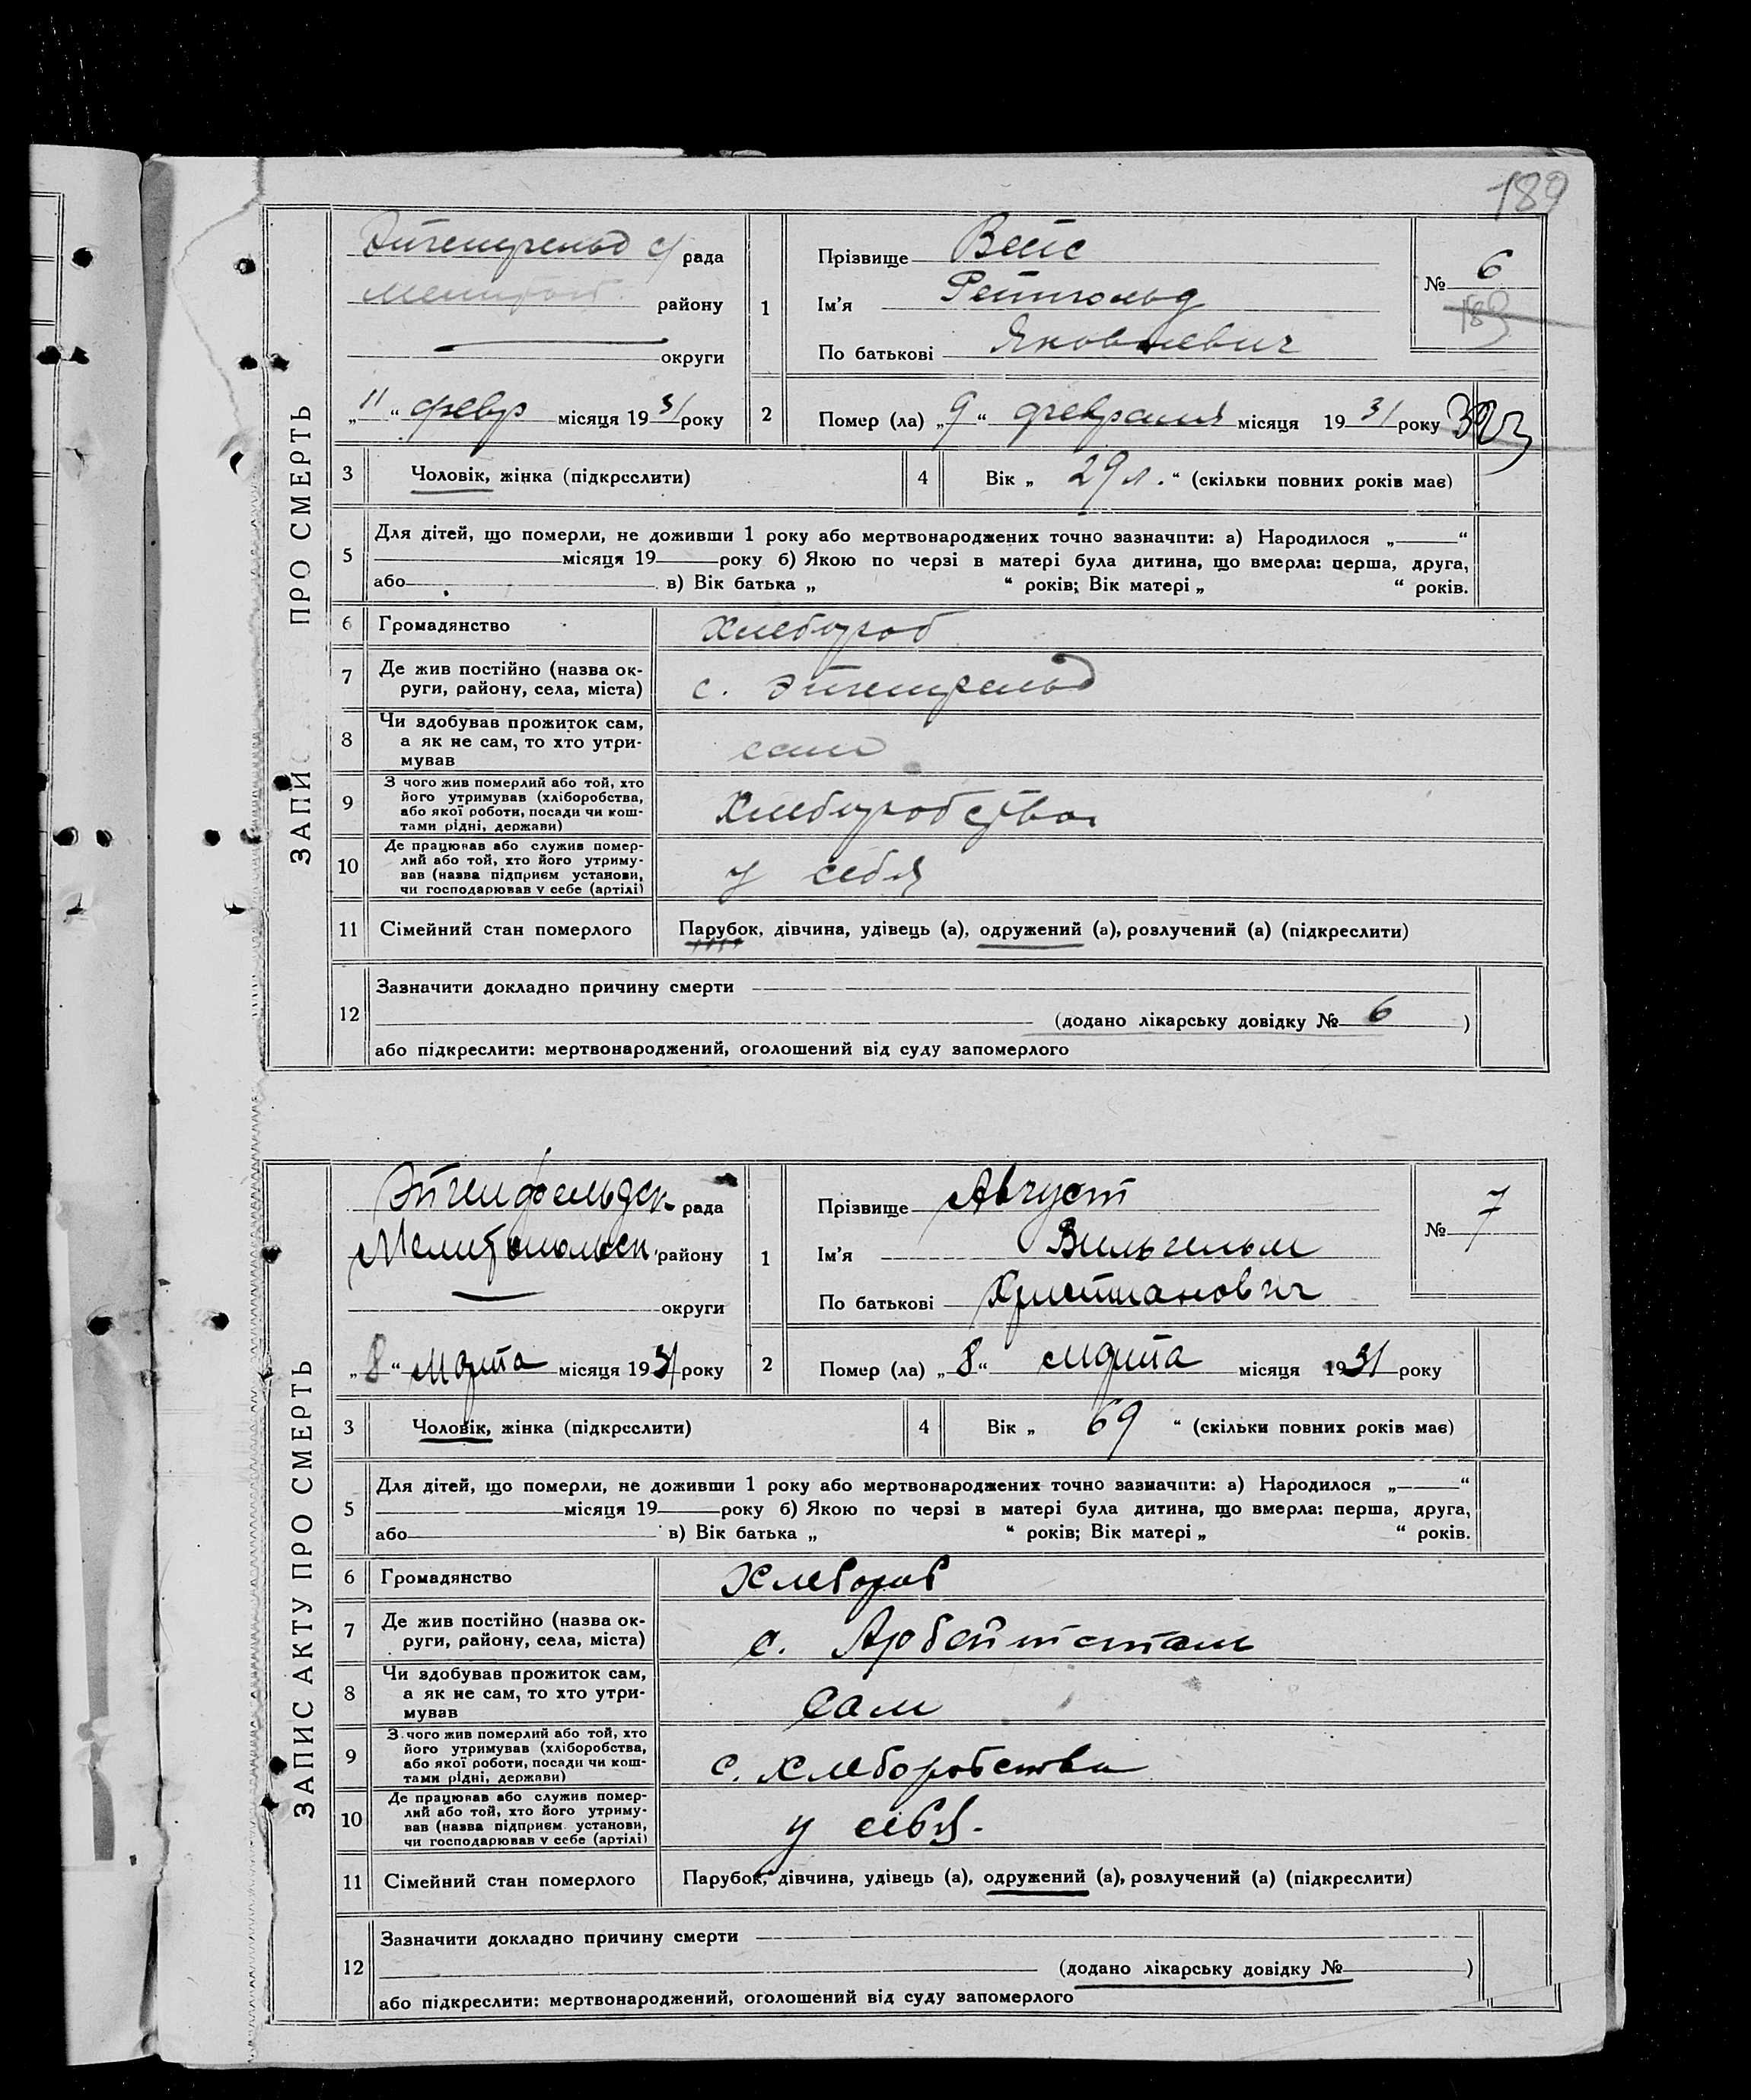 189
ЗАПИС ПРО СМЕРТЬ
Эйгенфельд с/ рада
Мелитоп. району
округи
„11“ февр місяця 1931 року
1
Прізвище Вейс
Ім’я Рейнгольд
По батькові Яковлевич
№ 6
183
2
Помер (ла) „9“ февраля місяця 1931 року
3
Чоловік, жінка (підкреслити)
4
Вік „29 л.“ (скільки повних років має)
5
Для дітей, що померли, не доживши 1 року або мертвонароджених точно зазначити: а) Народилося „ “
місяця 19 року б) Якою по черзі в матері була дитина, що вмерла: перша, друга,
або в) Вік батька „ “ років; Вік матері „ “ років.
6
Громадянство
хлебороб
7
Де жив постійно (назва ок-
руги, району, села, міста)
с. Эйгенфельд
8
Чи здобував прожиток сам,
а як не сам, то хто утри-
мував
сам
9
З чого жив померлий або той, хто
його утримував (хліборобства,
або якої роботи, посади чи кош-
тами рідні, держави)
Хлеборобства
10
Де працював або служив помер-
лий або той, хто його утриму-
вав (назва підприєм установи,
чи господарював у себе (артілі)
у себя
11
Сімейний стан померлого
Парубок, дівчина, удівець (а), одружений (а), розлучений (а) (підкреслити)
12
Зазначити докладно причину смерти
(додано лікарську довідку № 6 )
або підкреслити: мертвонароджений, оголошений від суду запомерлого
ЗАПИС АКТУ ПРО СМЕРТЬ
Эйгенфельдск. рада
Мелитопольск. району
округи
„8“ марта місяця 1931 року
1
Прізвище Август
Ім’я Вильгельм
По батькові Христианович
№ 7
2
Помер (ла) „8“ марта місяця 1931 року
3
Чоловік, жінка (підкреслити)
4
Вік „ 69 “ (скільки повних років має)
5
Для дітей, що померли, не доживши 1 року або мертвонароджених точно зазначити: а) Народилося „ “
місяця 19 року б) Якою по черзі в матері була дитина, що вмерла: перша, друга,
або в) Вік батька „ “ років; Вік матері „ “ років.
6
Громадянство
Хлебороб
7
Де жив постійно (назва ок-
руги, району, села, міста)
с. Арбейтсталь
8
Чи здобував прожиток сам,
а як не сам, то хто утри-
мував
Сам
9
З чого жив померлий або той, хто
його утримував (хліборобства,
або якої роботи, посади чи кош-
тами рідні, держави)
с. хлеборобства
10
Де працював або служив помер-
лий або той, хто його утриму-
вав (назва підприєм. установи,
чи господарював у себе (артілі)
у себя.
11
Сімейний стан померлого
Парубок, дівчина, удівець (а), одружений (а), розлучений (а) (підкреслити)
12
Зазначити докладно причину смерти
(додано лікарську довідку № )
або підкреслити: мертвонароджений, оголошений від суду запомерлого